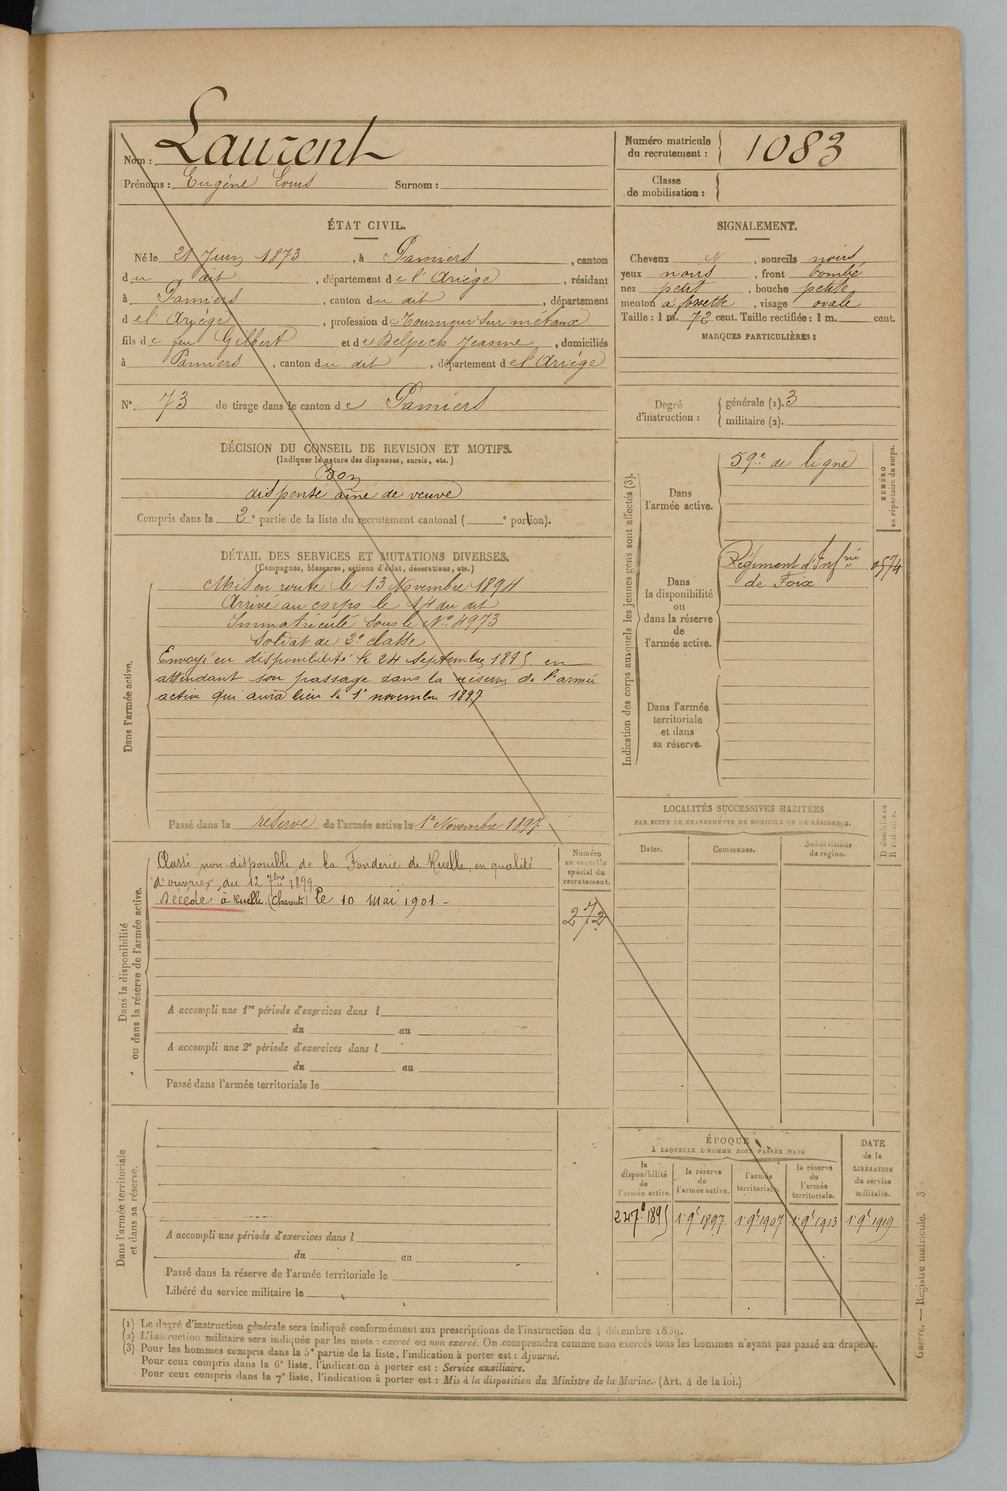 Nom : Laurent
Prénoms : Eugène Louis Surnom :
Numéro matricule du recrutement : 1083
Classe de mobilisation :
ÉTAT CIVIL.
Né le 21 Juin 1873, à Pamiers, canton
du dit, département de l'Ariège, résidant
à Pamiers, canton du dit, département
d el'Ariège, profession de Tourneur sur métaux
fils de feu Gilbert et de Delpech Jeanne, domiciliés
à Pamiers, canton du dit, département de l'Ariège
N° 73 de tirage dans le canton de Pamiers
SIGNALEMENT.
Cheveux N, sourcils noirs
yeux noirs, front bombé
nez petit, bouche petite
menton à fossette, visage ovale
Taille : 1 m. 72 cent. Taille rectifiée : 1 m. cent.
MARQUES PARTICULIÈRES :
Degré d'instruction : générale (1). 3
militaire (2).
DÉCISION DU CONSEIL DE REVISION ET MOTIFS.
(Indiquer la nature des dispenses, sursis, etc.)
Bon
dispensé aîné de veuve
Compris dans la 2e partie de la liste du recrutement cantonal ( e portion).
DÉTAIL DES SERVICES ET MUTATIONS DIVERSES.
(Campagnes, blessures, actions d'éclat, décorations, etc.)
Dans l'armée active.
Mis en route le 13 Novembre 1894
Arrivé au corps le 14 du dit
Immatriculé sous le N° 4973
Soldat de 2e classe
Envoyé en disponibilité le 24 Septembre 1895 en
attendant son passage dans la réserve de l'armée
active qui aura lieu le 1er novembre 1897
Passé dans la réserve de l'armée active le 1er Novembre 1897
Indication des corps auxquels les jeunes gens sont affectés (3).
NUMÉRO au répertoire du corps.
Dans l'armée active.
59e de ligne
Dans la disponibilité ou dans la réserve de l'armée active.
Régiment d'Infrie
de Foix
0574
Dans l'armée territoriale et dans sa réserve.
LOCALITÉS SUCCESSIVES HABITÉES
PAR SUITE DE CHANGEMENTS DE DOMICILE OU DE RÉSIDENCE.
Dates. Communes. Subdivisions de région.
Dans la disponibilité ou dans la réserve de l'armée active.
Classé non disponible de la Fonderie de Ruelle, en qualité
d'ouvrier, du 12 7bre 1899
Décédé à Ruelle (Charente) le 10 mai 1901 -
Numéro au contrôle spécial du recrutement.
272
A accompli une 1re période d'exercices dans l
du au
A accompli une 2e période d'exercices dans l
du au
Passé dans l'armée territoriale le
Dans l'armée territoriale et dans sa réserve.
A accompli une période d'exercices dans l
du au
Passé dans la réserve de l'armée territoriale le
Libéré du service militaire le
ÉPOQUE
À LAQUELLE L'HOMME DOIT PASSER DANS
la disponibilité de l'armée active.
la réserve de l'armée active.
l'armée territoriale.
la réserve de l'armée territoriale.
DATE de la LIBÉRATION du service militaire.
24 7e 1895 1er 9e 1897 1er 9e 1907 1er 9e 1913 1er 9e 1919
(1) Le degré d'instruction générale sera indiqué conformément aux prescriptions de l'instruction du 4 décembre 1889.
(2) L'instruction militaire sera indiquée par les mots : exercé ou non exercé. On comprendra comme non exercés tous les hommes n'ayant pas passé au drapeau.
(3) Pour les hommes compris dans la 5e partie de la liste, l'indication à porter est : Ajourné.
Pour ceux compris dans la 6e liste, l'indication à porter est : Service auxiliaire.
Pour ceux compris dans la 7e liste, l'indication à porter est : Mis à la disposition du Ministre de la Marine. (Art. 4 de la loi.)
Guerre. — Registre matricule. 3